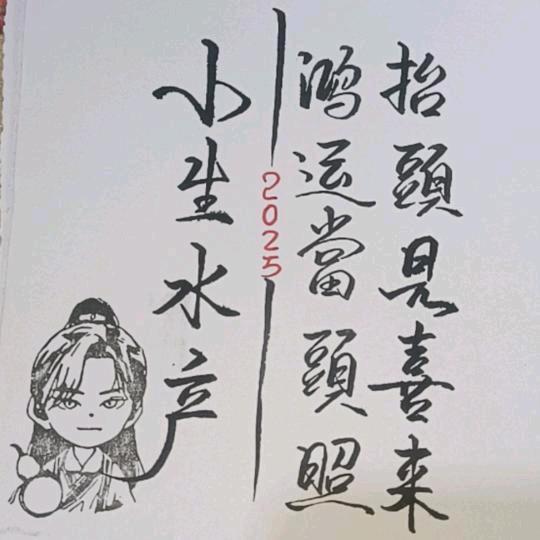 抬頭見喜来
鸿运當頭照
2025
小生水产